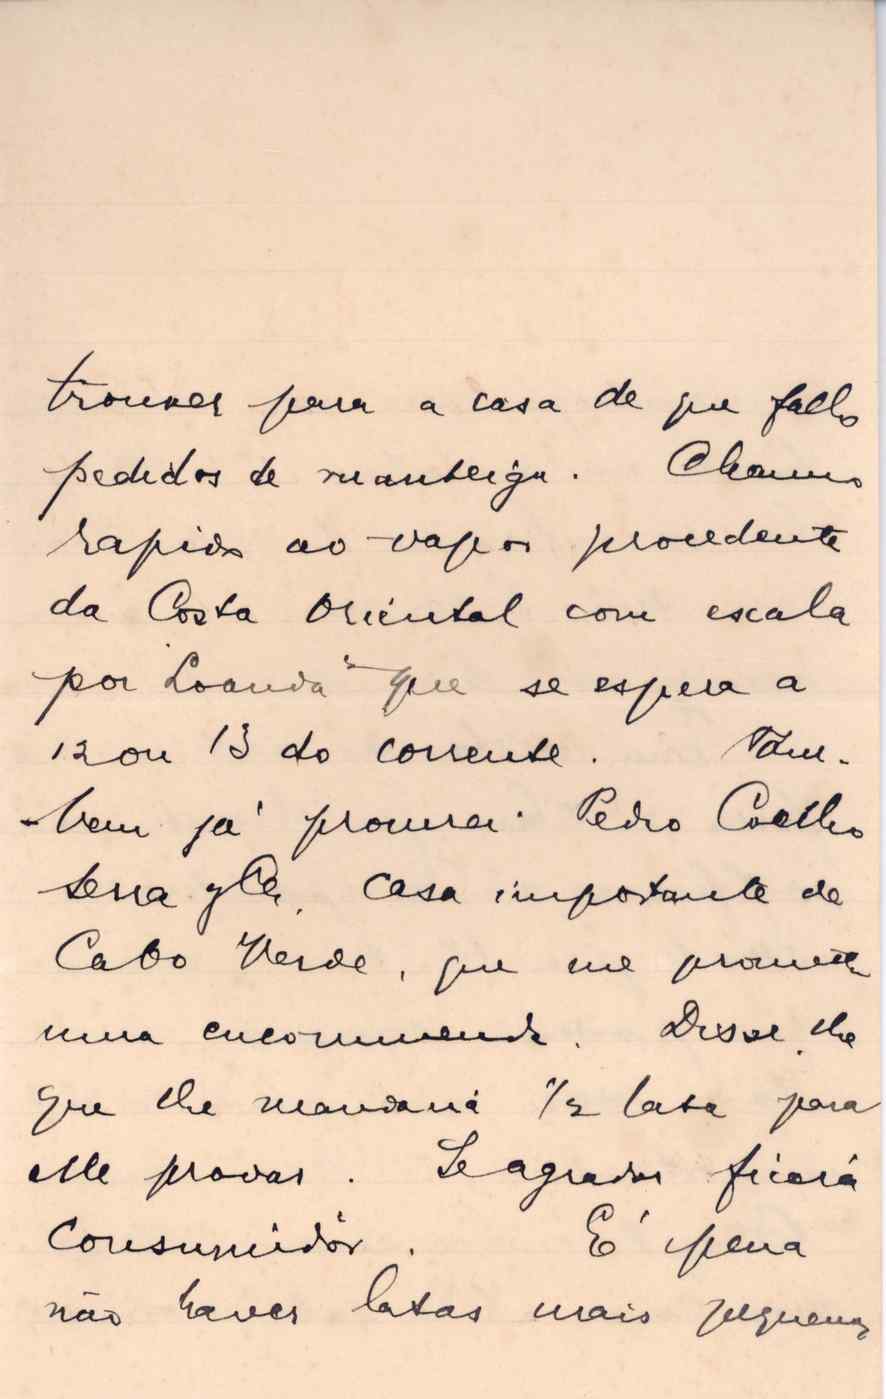 trouxer para a casa de que fallo
pedidos de manteiga. Chamo
rapido ao vapor procedente
da Costa Oriental com escala
por "Loanda" que se espera a
12 ou 13 do corrente. Tam-
-bem já procurei Pedro Coelho
Serra & Ca, casa importante de
Cabo Verde, que me prometeu
uma encommenda. Disse lhe
que lhe mandaria 1/2 lata para
elle provar. Se agradar ficará
consumidôr. É pena
não haver latas mais pequenas